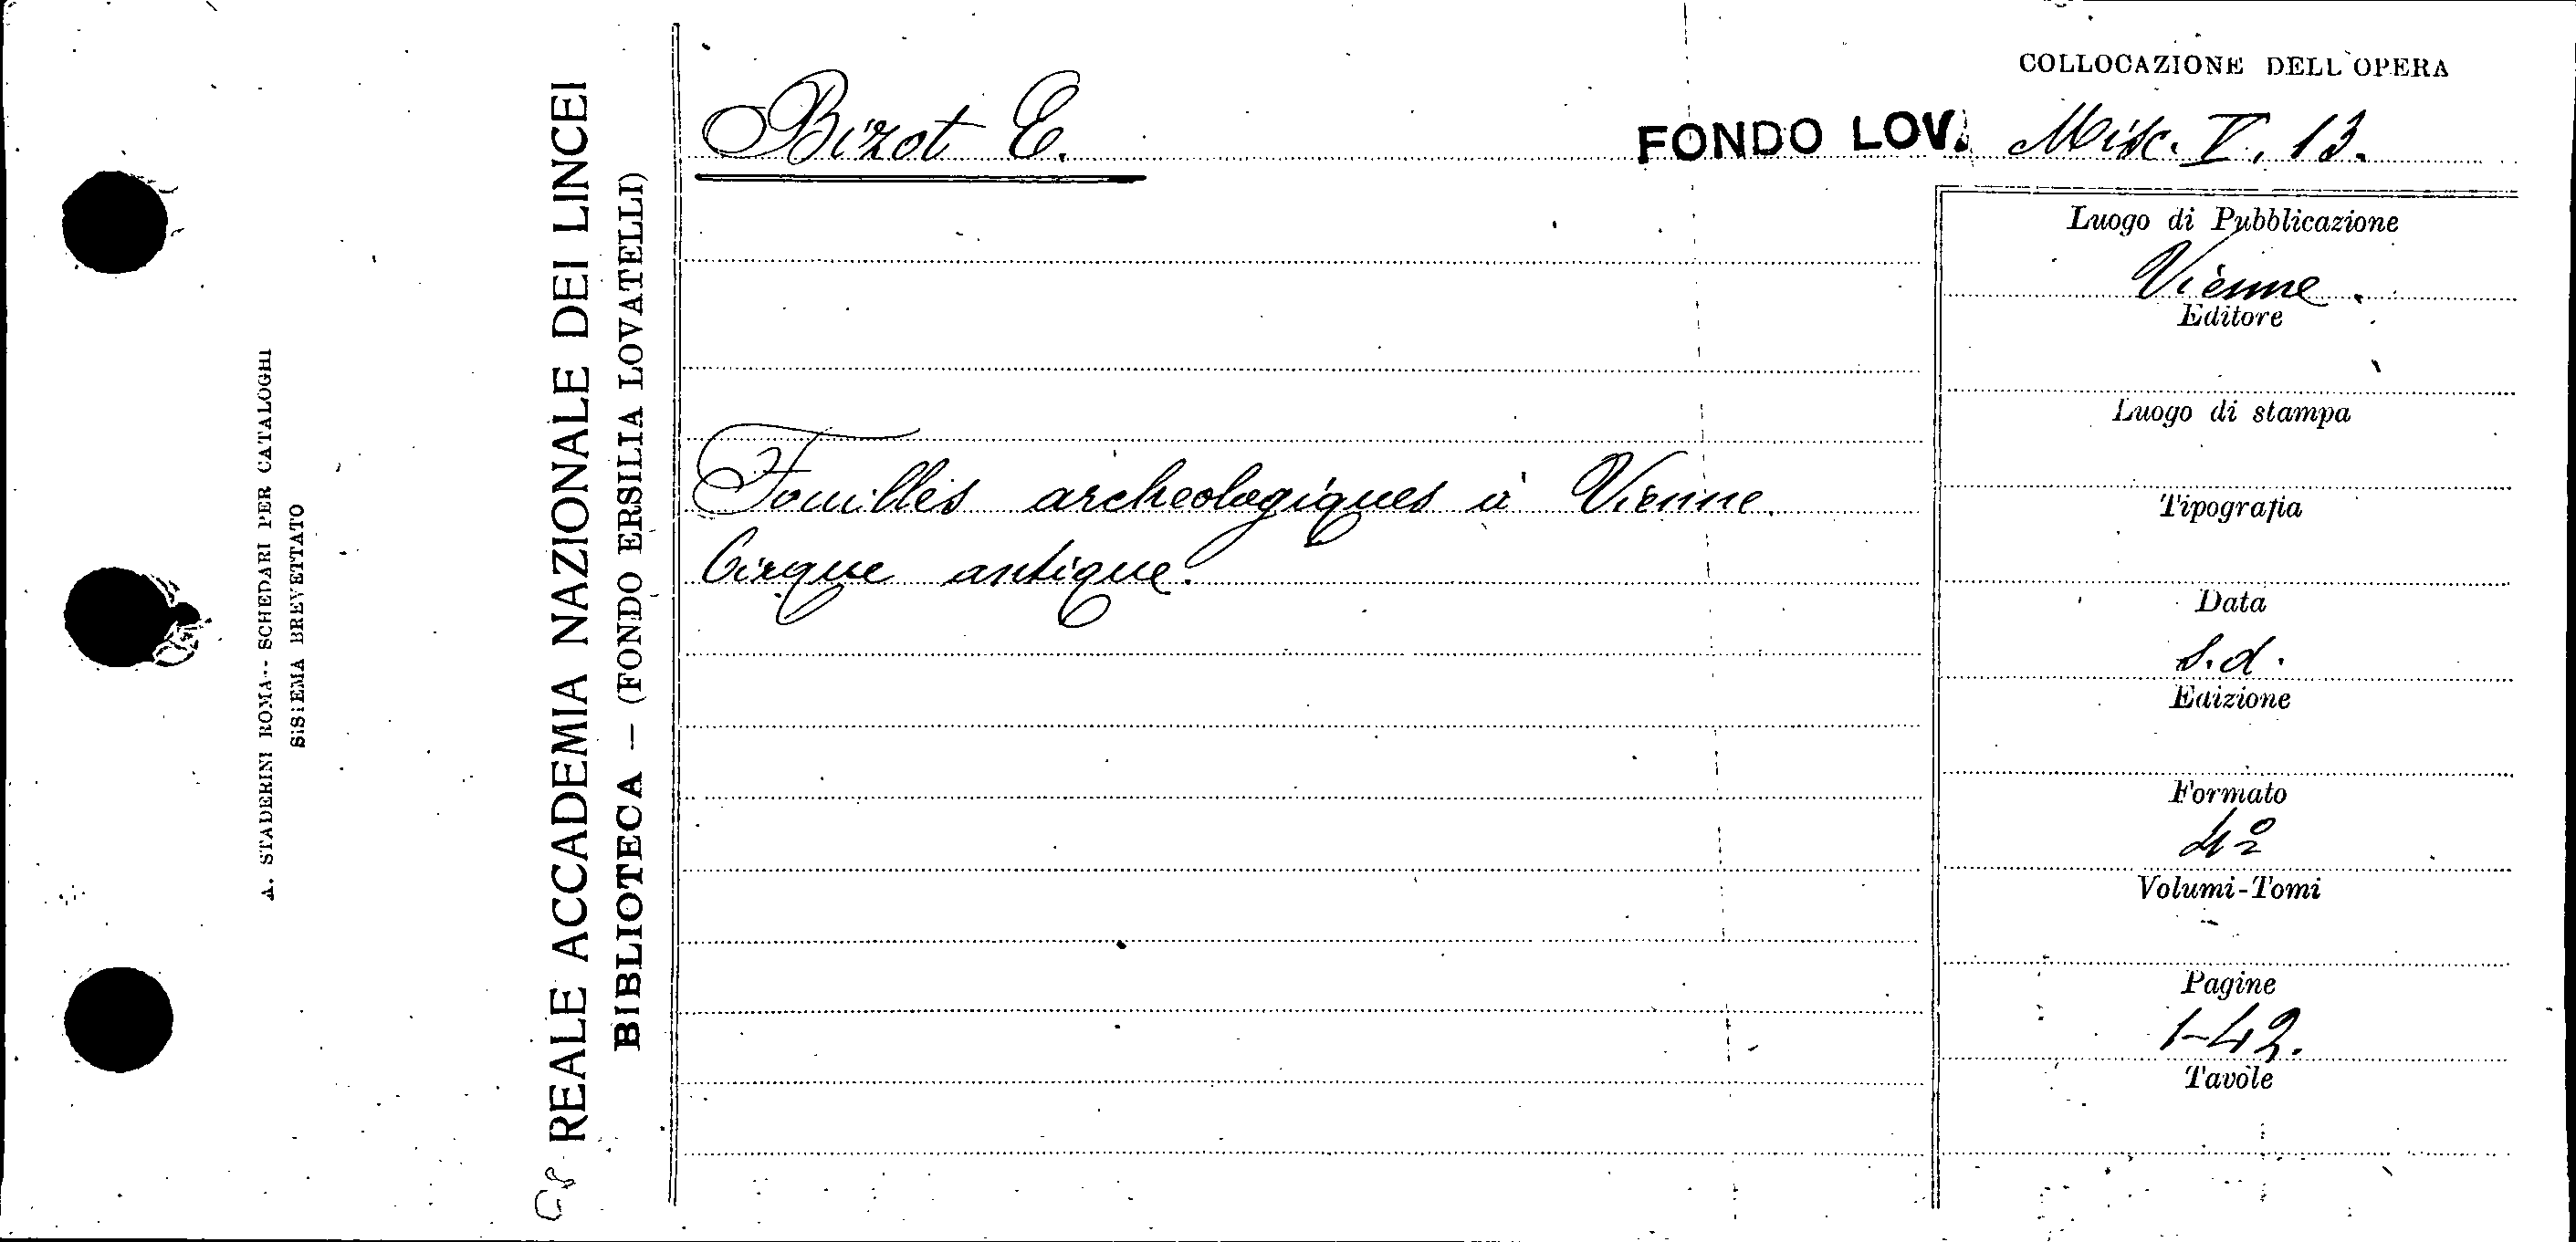 A. STADERINI ROMA -- SCHEDARI PER CATALOGHI
SISTEMA BREVETTATO
REALE ACCADEMIA NAZIONALE DEI LINCEI
BIBLIOTECA — (FONDO ERSILIA LOVATELLI)
COLLOCAZIONE DELL'OPERA
Bizot E.
FONDO LOV. Misc. V. 13.
Fouilles archeologiques à Vienne.
Cirque antique.
Luogo di Pubblicazione
Vienne.
Editore
Luogo di stampa
Tipografia
Data
s.d.
Edizione
Formato
4°
Volumi-Tomi
Pagine
1-42.
Tavole